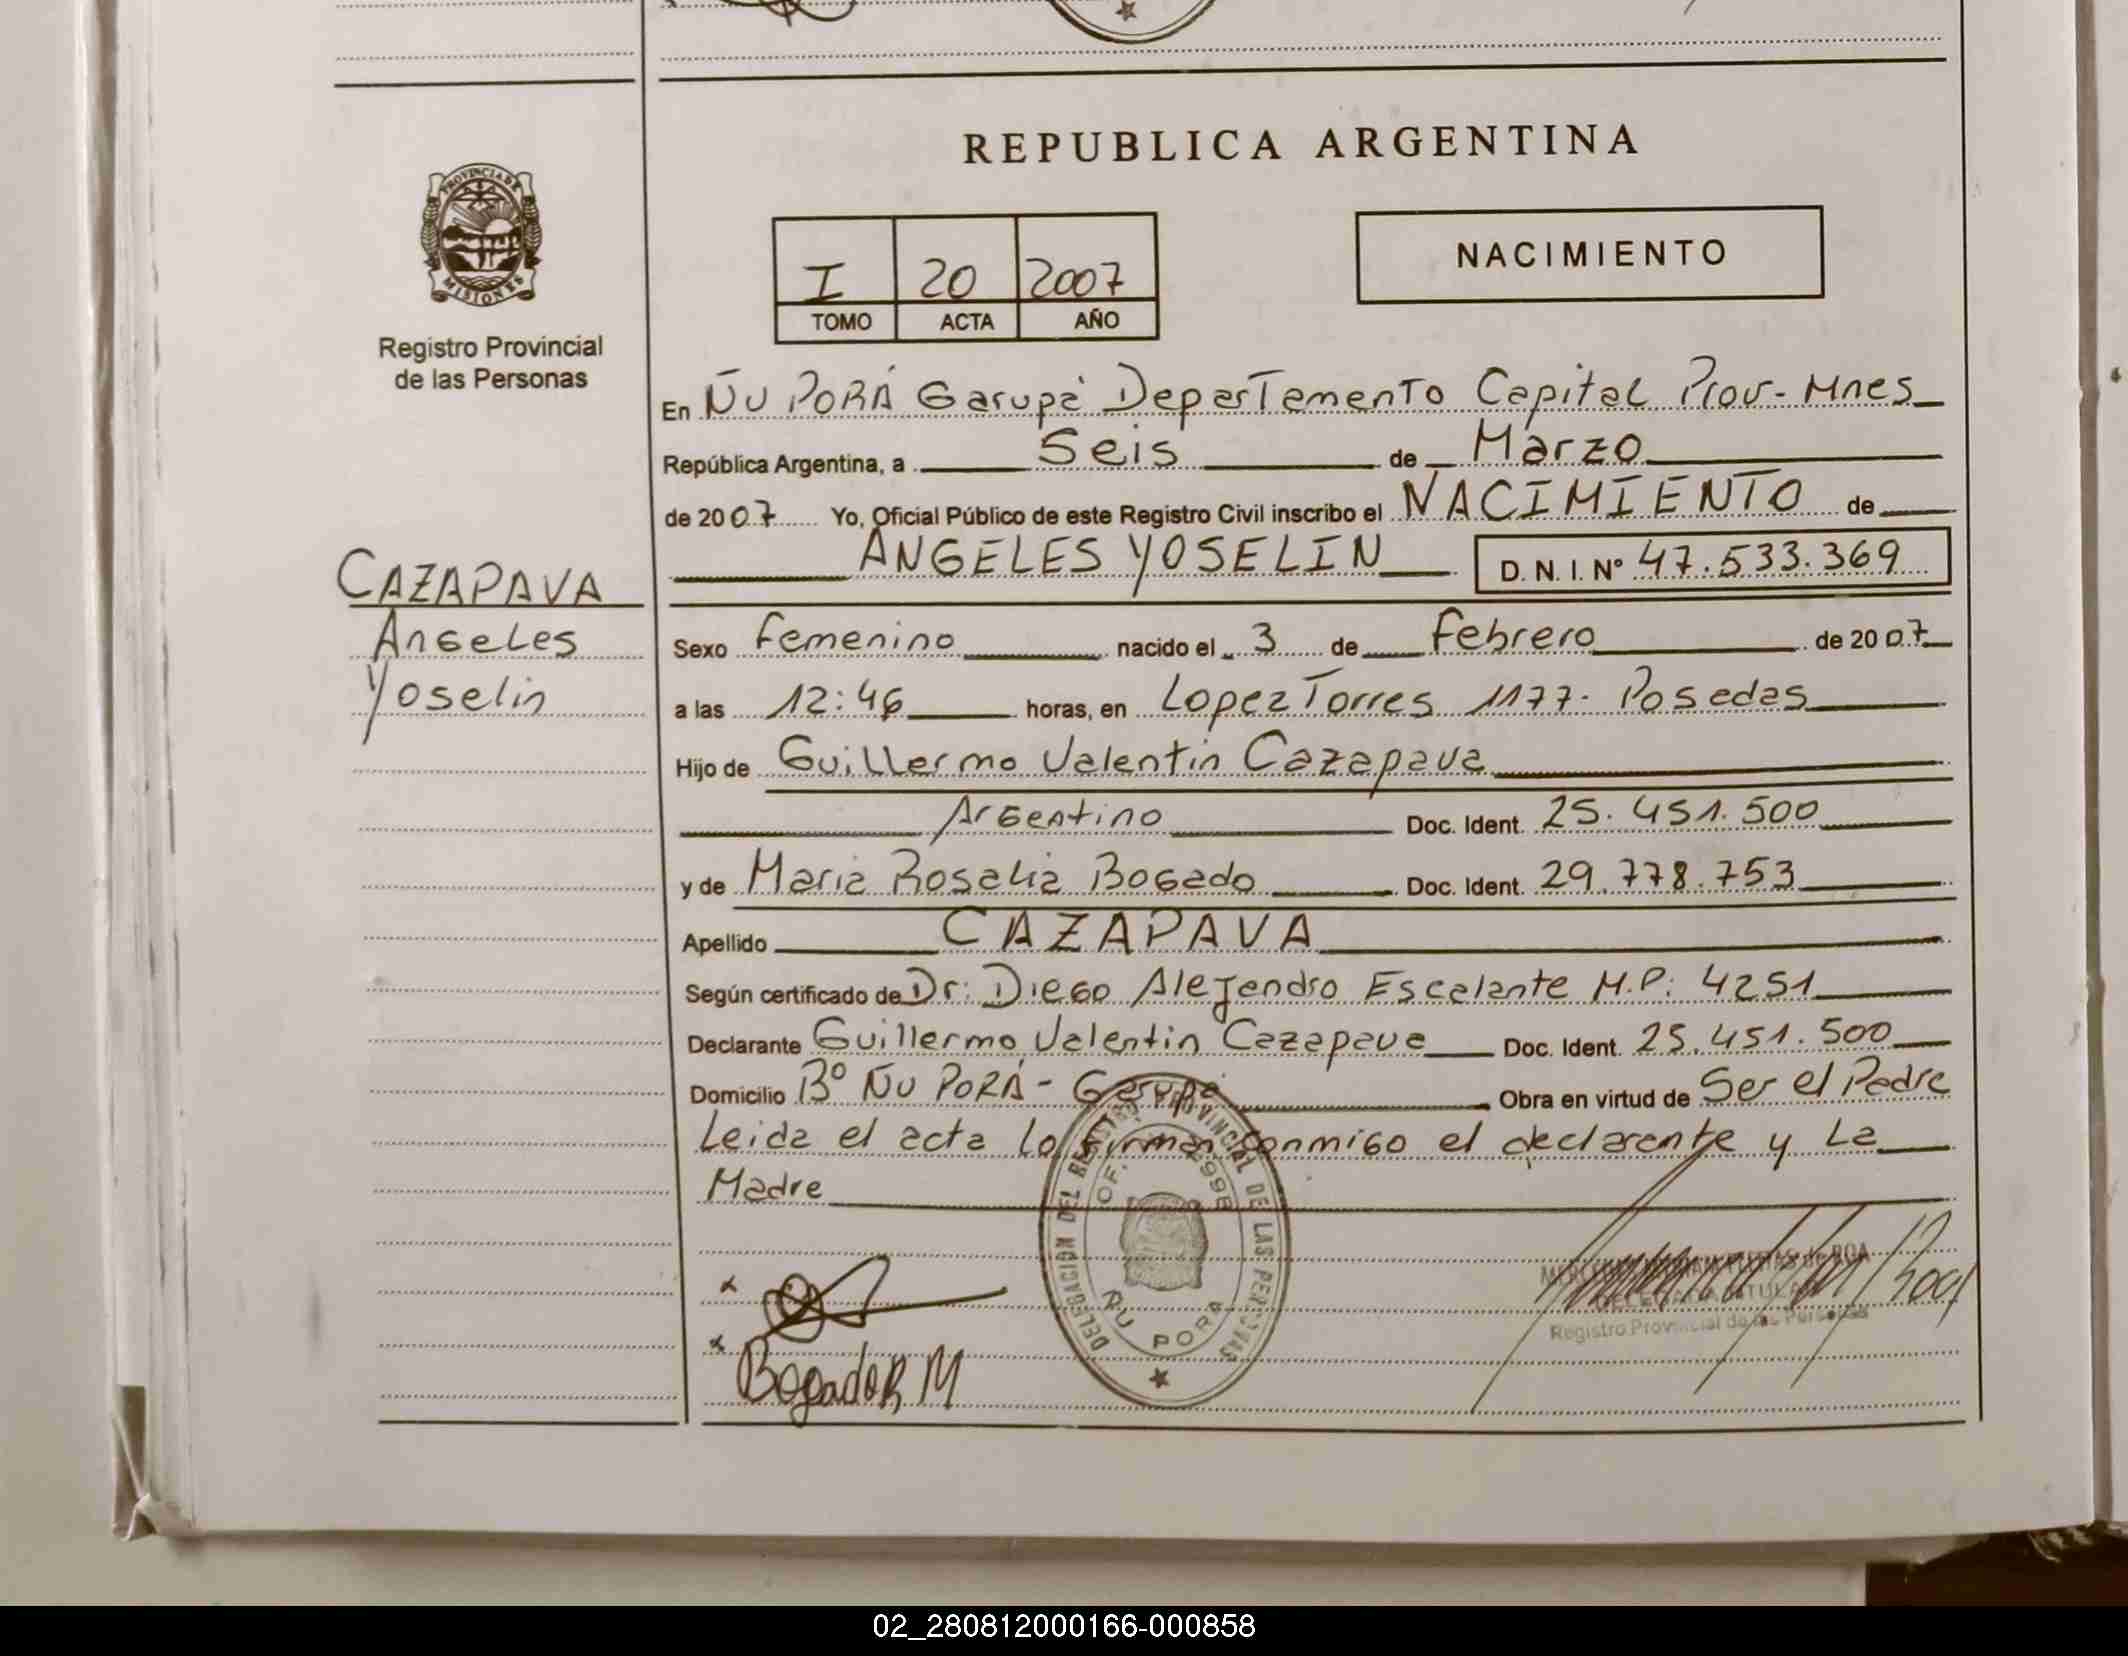 REPUBLICA ARGENTINA
PROVINCIA DE
MISIONES
Registro Provincial
de las Personas
I 20 2007
TOMO ACTA AÑO
NACIMIENTO
En ÑU PORÁ Garupá Departamento Capital Prov- Mnes
República Argentina, a Seis de Marzo
de 2007 Yo, Oficial Público de este Registro Civil inscribo el NACIMIENTO de
ANGELES YOSELIN D. N. I. Nº 47.533.369
CAZAPAVA
Angeles
Yoselin
Sexo Femenino nacido el 3 de Febrero de 2007
a las 12:46 horas, en Lopez Torres 1177- Posadas
Hijo de Guillermo Valentin Cazapava
Argentino Doc. Ident. 25.451.500
y de Maria Rosalia Bogado Doc. Ident. 29.778.753
Apellido CAZAPAVA
Según certificado de Dr: Diego Alejandro Escalante M.P: 4251
Declarante Guillermo Valentin Cazapava Doc. Ident. 25.451.500
Domicilio Bº ÑU PORÁ - Garupá Obra en virtud de Ser el Padre
Leida el acta lo firman conmigo el declarante y La
Madre
DELEGACION DEL REGISTRO PROVINCIAL DE LAS PERSONAS
OF. 2998
ÑU PORA
x
x Bogado R, M
DELEGADA TITULAR
Registro Provincial de las Personas
02_280812000166-000858